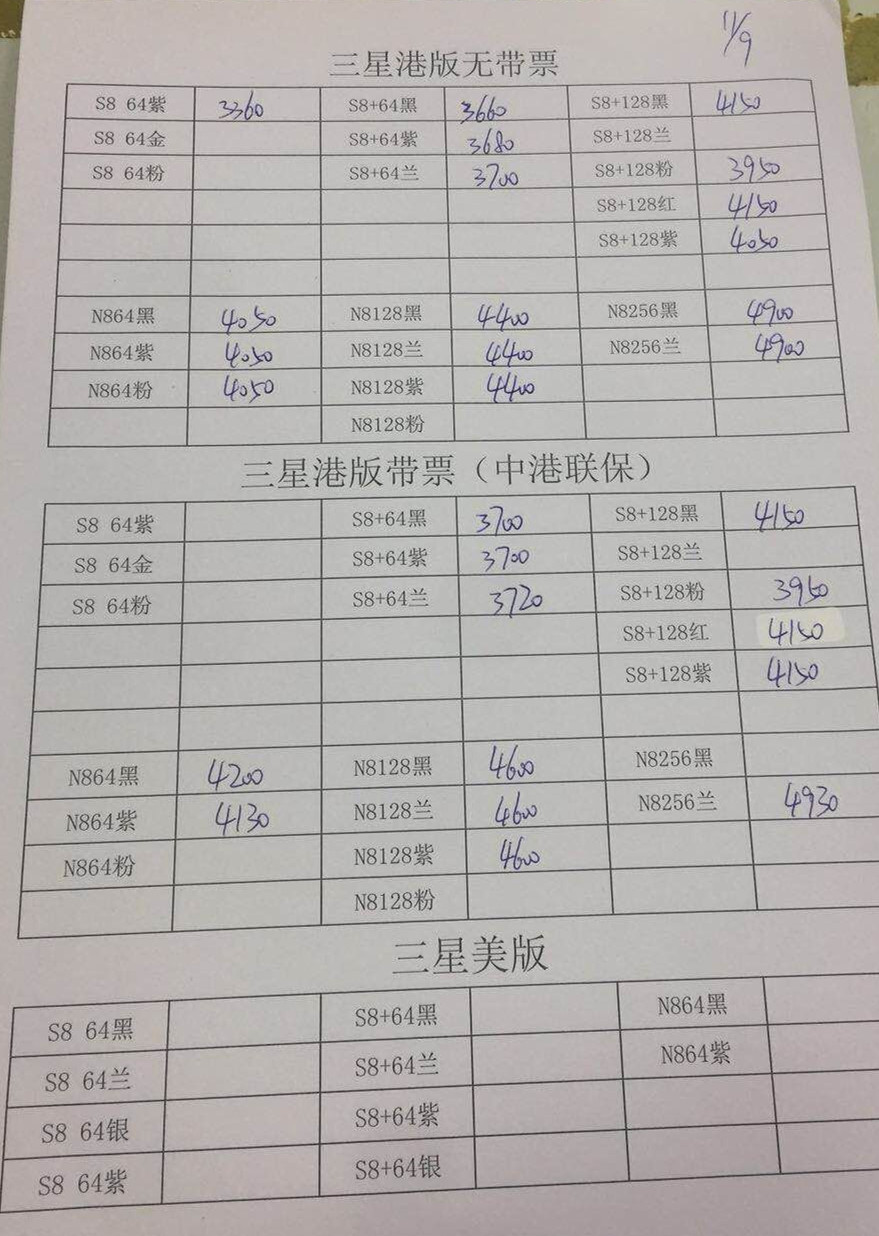 11/9
三星港版无带票
S8 64紫 3360 S8+64黑 3660 S8+128黑 4150
S8 64金 S8+64紫 3680 S8+128兰
S8 64粉 S8+64兰 3700 S8+128粉 3950
S8+128红 4150
S8+128紫 4050
N864黑 4050 N8128黑 4400 N8256黑 4900
N864紫 4050 N8128兰 4400 N8256兰 4900
N864粉 4050 N8128紫 4400
N8128粉
三星港版带票（中港联保）
S8 64紫 S8+64黑 3700 S8+128黑 4150
S8 64金 S8+64紫 3700 S8+128兰
S8 64粉 S8+64兰 3720 S8+128粉 3950
S8+128红 4150
S8+128紫 4150
N864黑 4200 N8128黑 4600 N8256黑
N864紫 4130 N8128兰 4600 N8256兰 4930
N864粉 N8128紫 4600
N8128粉
三星美版
S8 64黑 S8+64黑 N864黑
S8 64兰 S8+64兰 N864紫
S8 64银 S8+64紫
S8 64紫 S8+64银